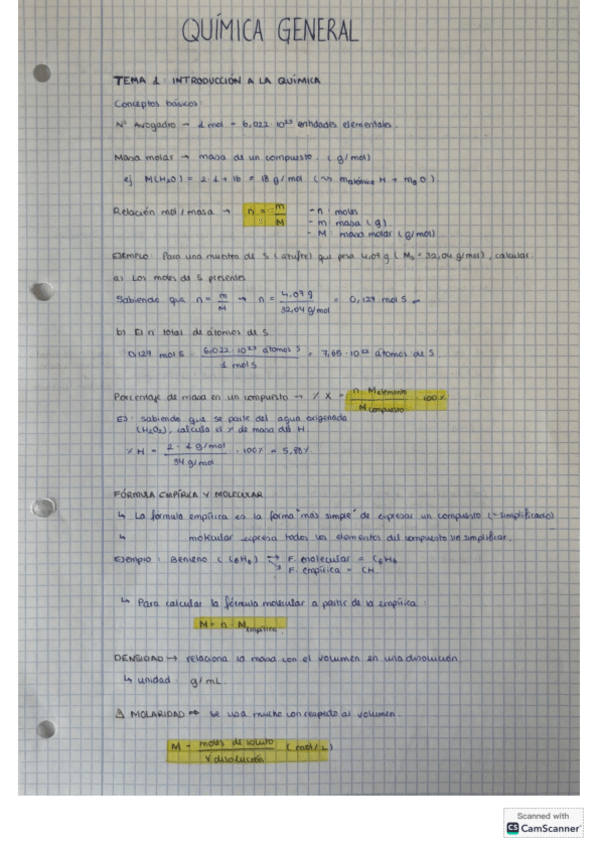 QUÍMICA GENERAL
TEMA 1: INTRODUCCIÓN A LA QUÍMICA
Conceptos básicos:
Nº Avogadro → 1 mol = 6,022·10²³ entidades elementales.
Masa molar → masa de un compuesto. (g/mol)
ej M(H₂O) = 2·1+16 = 18 g/mol (→ m atómica H + m O)
Relación mol/masa → n = m/M - n: moles
- m: masa (g)
- M: masa molar (g/mol)
EJEMPLO: Para una muestra de S (azufre) que pesa 4,07 g (Ms = 32,04 g/mol), calcular:
a) Los moles de S presentes
Sabiendo que n = m/M → n = 4,07 g / 32,04 g/mol = 0,127 mol S
b) El nº total de átomos de S.
0,127 mol S · 6,022·10²³ átomos S / 1 mol S = 7,65·10²² átomos de S.
Porcentaje de masa en un compuesto → % X = n · M elemento / M compuesto · 100%
EJ: sabiendo que se parte del agua oxigenada
(H₂O₂), calcula el % de masa del H
% H = 2·1 g/mol / 34 g/mol · 100% = 5,88%
FÓRMULA EMPÍRICA Y MOLECULAR
↳ La fórmula empírica es la forma "más simple" de expresar un compuesto (= simplificado)
↳ molecular expresa todos los elementos del compuesto sin simplificar.
Ejemplo: Benceno (C₆H₆) → F. molecular = C₆H₆
→ F. empírica = CH
↳ Para calcular la fórmula molecular a partir de la empírica:
M = n · M empírica
DENSIDAD → relaciona la masa con el volumen en una disolución.
↳ unidad: g/mL
⚠ MOLARIDAD → se usa mucho con respecto al volumen.
M = moles de soluto / V disolución (mol/L)
Scanned with
CS CamScanner